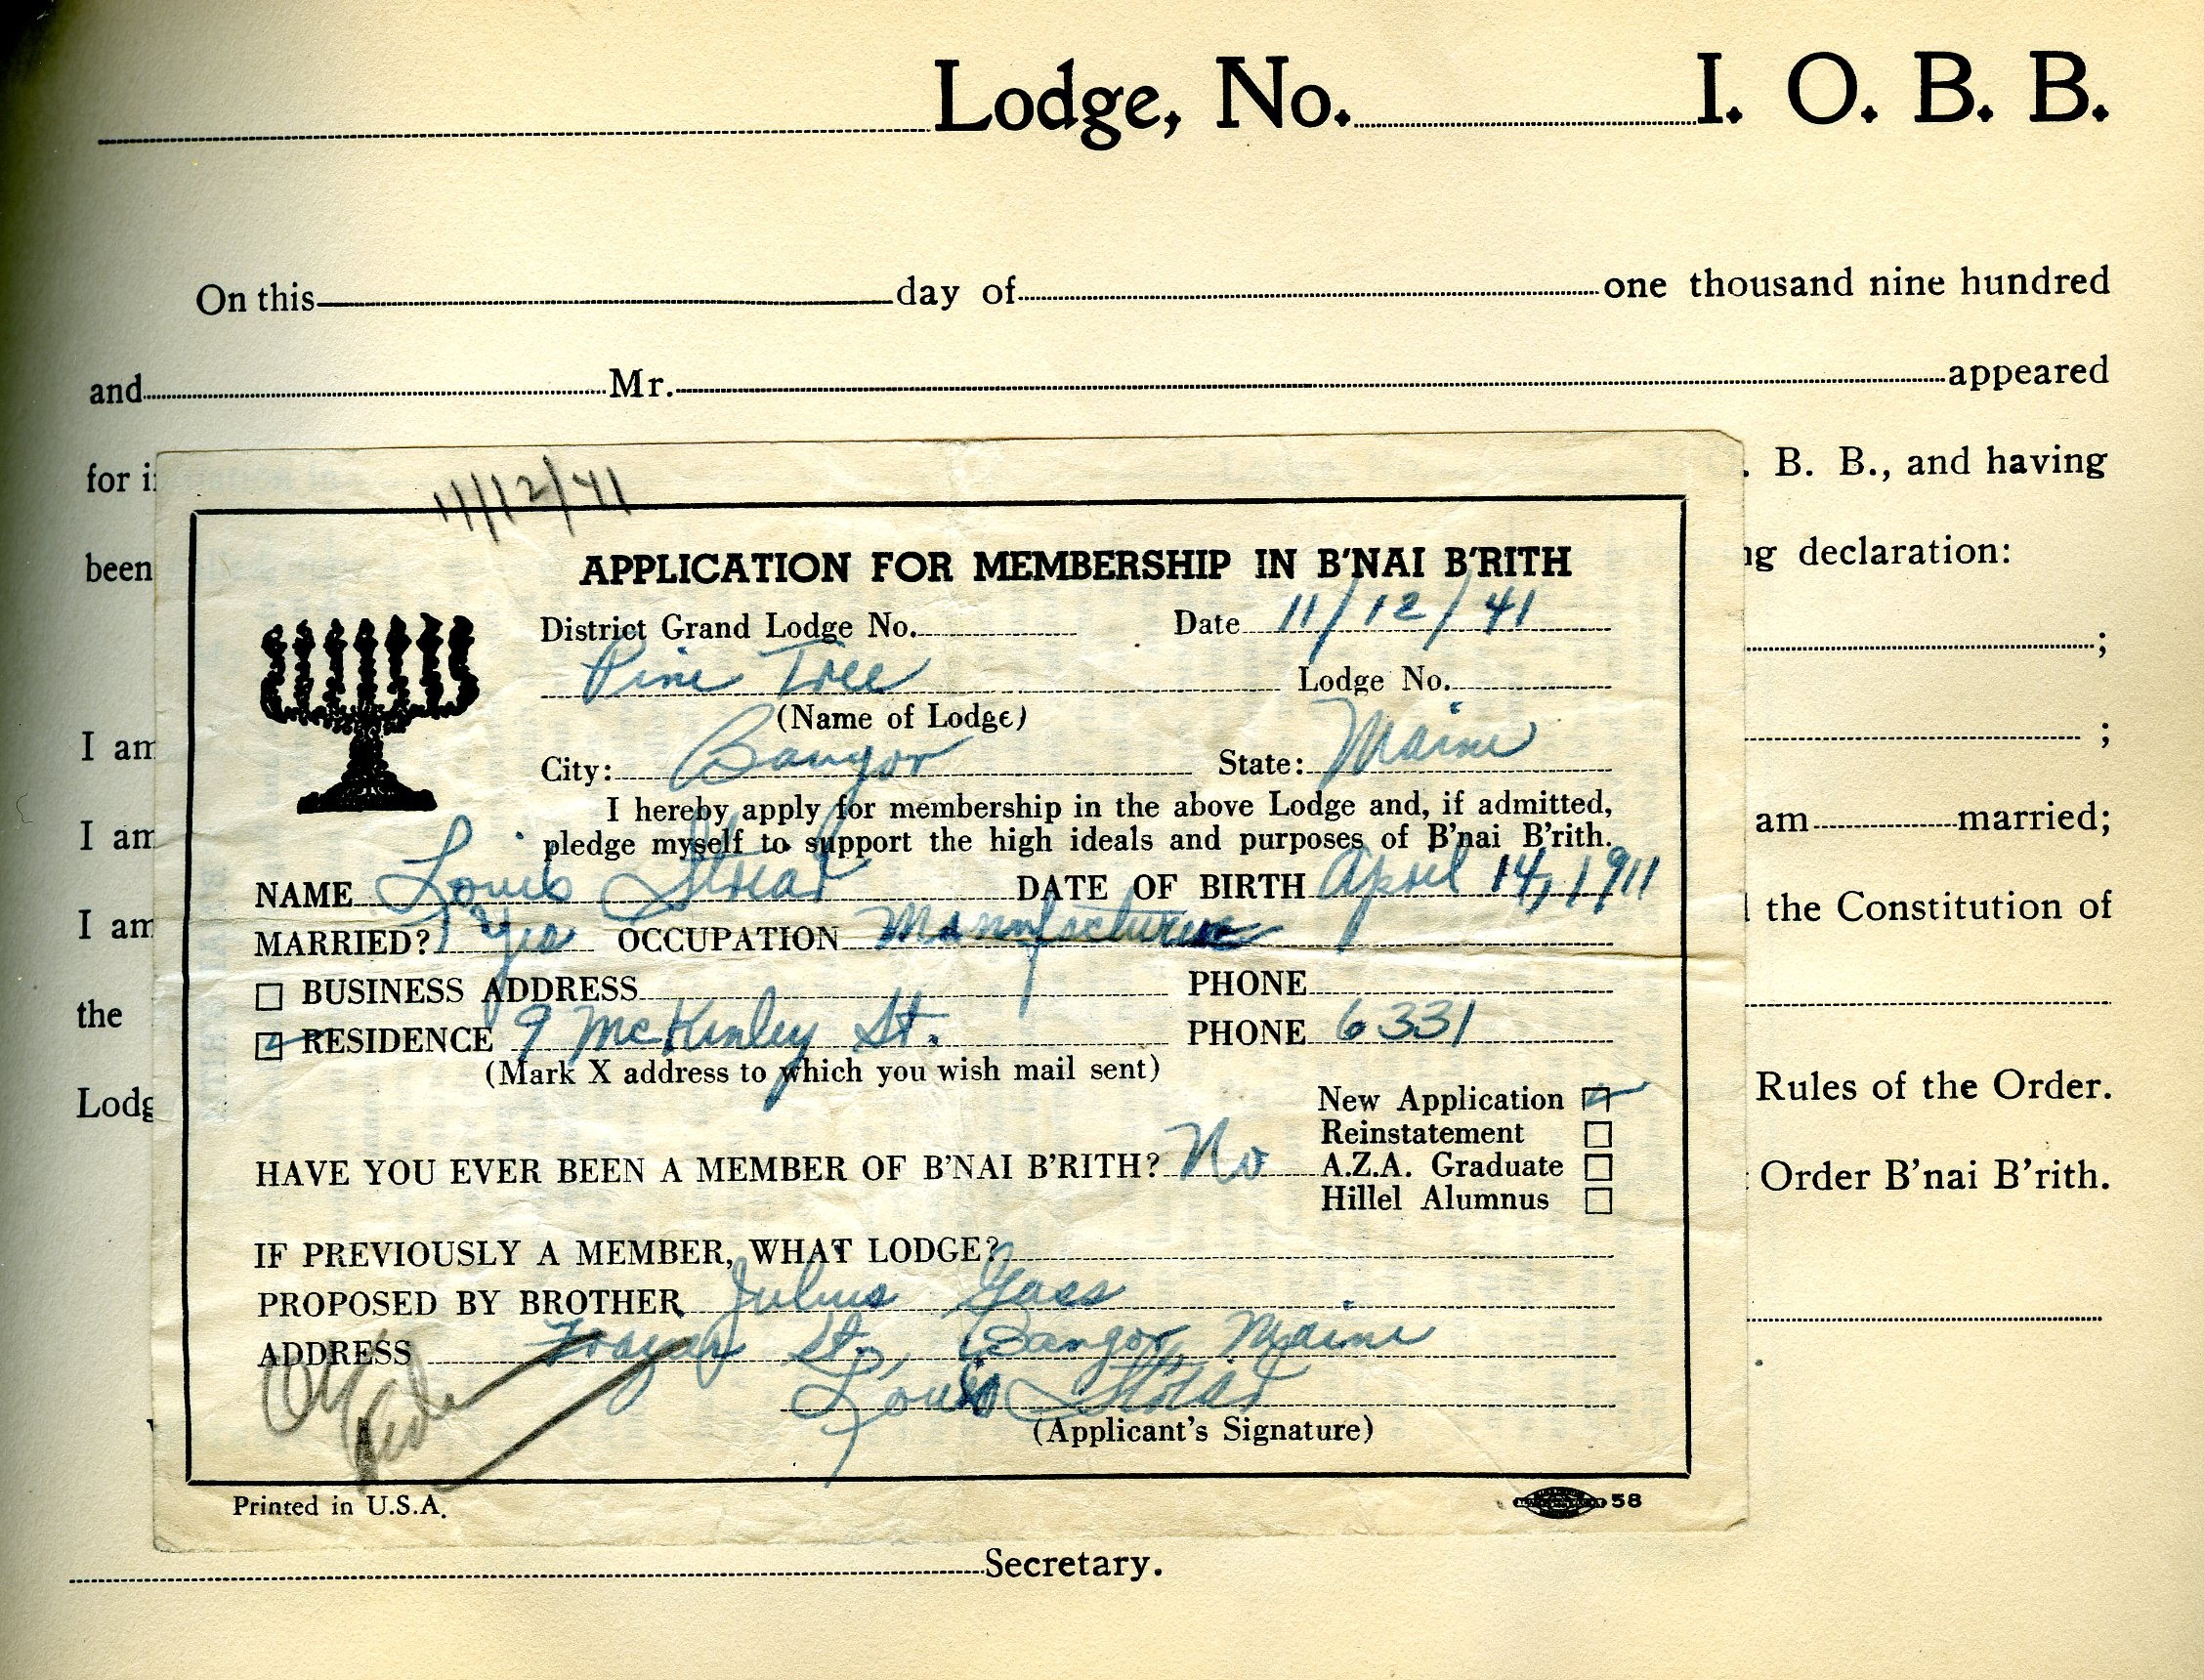 Lodge, No. I. O. B. B.
On this day of one thousand nine hundred
and Mr. appeared
for i . B. B., and having
been ng declaration:
;
I am ;
I am am married;
I am the Constitution of
the
Lodg Rules of the Order.
Order B'nai B'rith.
Secretary.
11/12/41
APPLICATION FOR MEMBERSHIP IN B'NAI B'RITH
District Grand Lodge No. Date 11/12/41
Pine Tree Lodge No.
(Name of Lodge)
City: Bangor State: Maine
I hereby apply for membership in the above Lodge and, if admitted,
pledge myself to support the high ideals and purposes of B'nai B'rith.
NAME Louis Stolar DATE OF BIRTH April 14, 1911
MARRIED? Yes OCCUPATION Manufacturer
BUSINESS ADDRESS PHONE
RESIDENCE 9 McKinley St. PHONE 6331
(Mark X address to which you wish mail sent)
New Application
Reinstatement
HAVE YOU EVER BEEN A MEMBER OF B'NAI B'RITH? No A.Z.A. Graduate
Hillel Alumnus
IF PREVIOUSLY A MEMBER, WHAT LODGE?
PROPOSED BY BROTHER Julius Gass
ADDRESS St., Bangor, Maine
Louis Stolar
(Applicant's Signature)
Printed in U.S.A.
58